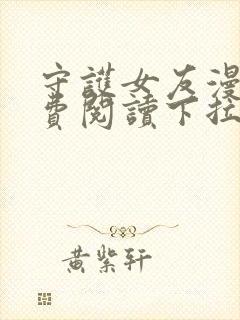 守護女友漫
費閱讀下拉
黃紫軒